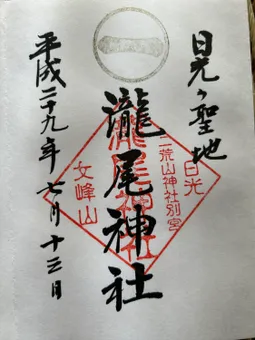 日光ヶ聖地
瀧尾神社
平成二十九年七月十三日
日光
二荒山神社別宮
瀧尾神社
女峰山
一